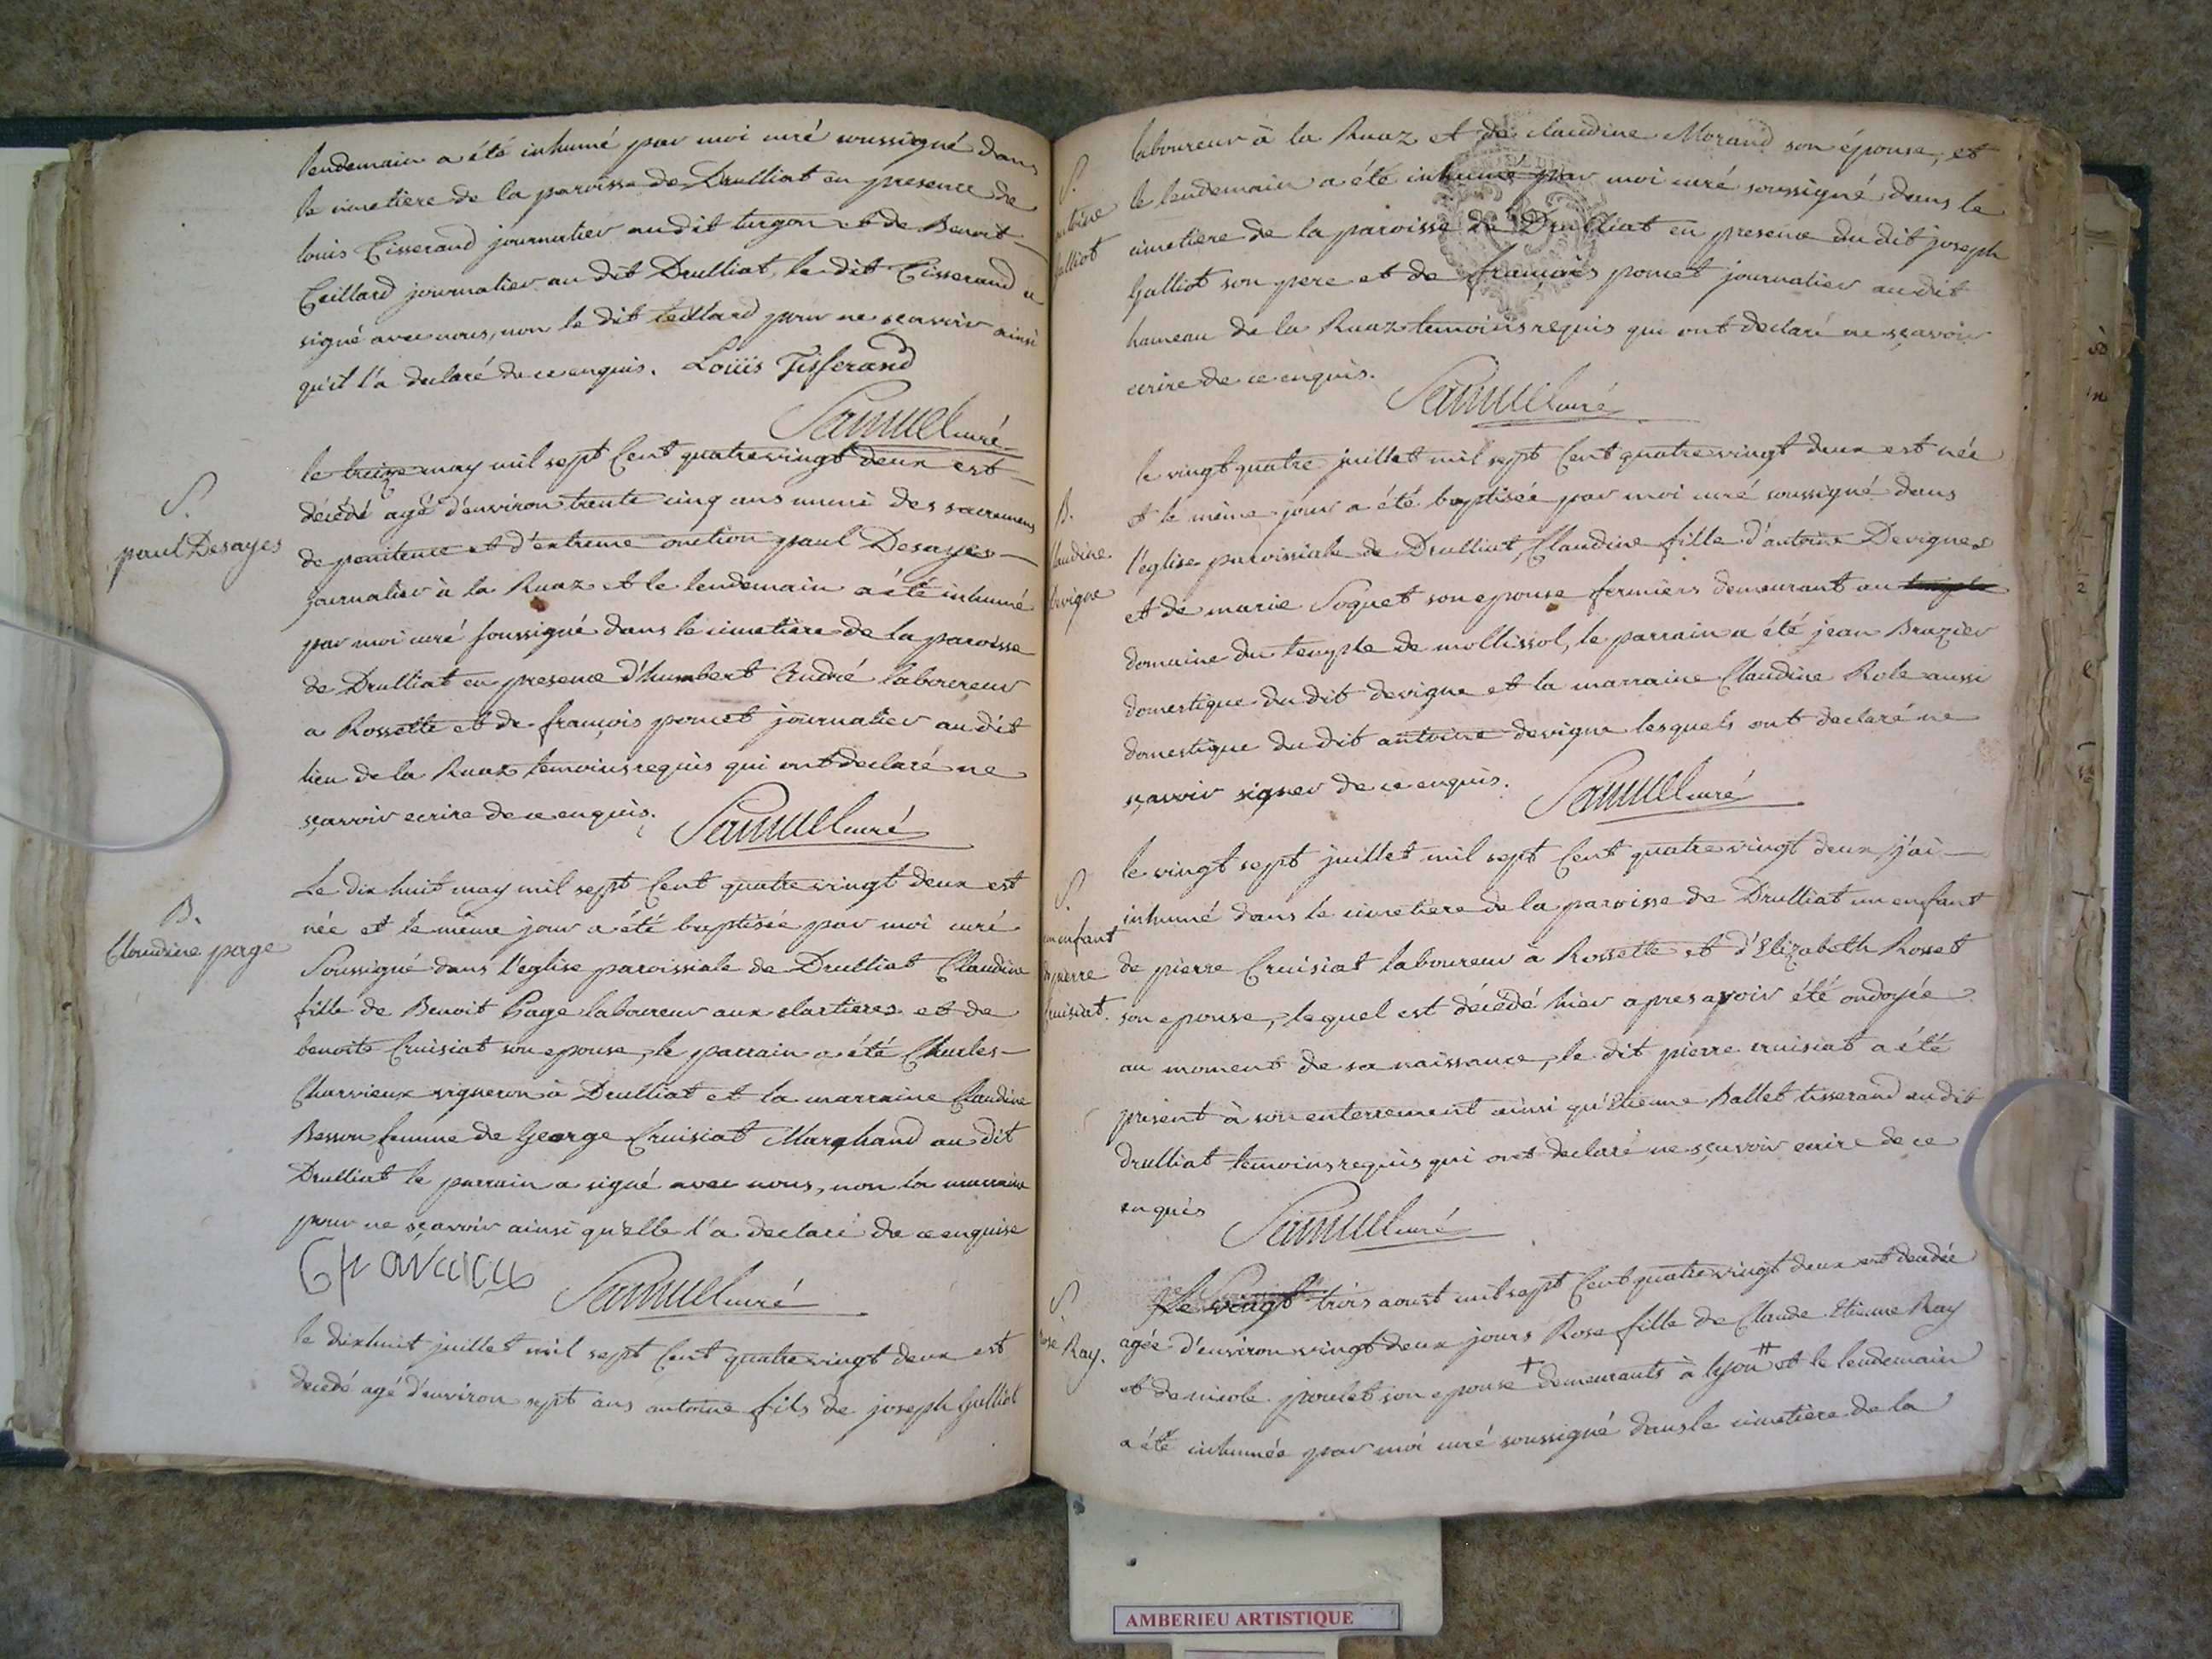 lendemain a été inhumé par moi curé soussigné dans
le cimetiere de la paroisse de Drulliat en presence de
louis Tisserand journalier au dit turgon et de Benoit
Teillard journalier au dit Drulliat, le dit Tisserand a
signé avec nous, non le dit teillard pour ne sçavoir ainsi
qu'il l'a declaré de ce enquis. Loüis Tisserand
Samuel curé
S.
paul Desayes
le treize may mil sept Cent quatrevingt deux est
décédé agé d'environ trente cinq ans muni des sacremens
de penitence et d'extreme onction paul Desayes
journalier à la Ruaz et le lendemain a été inhumé
par moi curé soussigné dans le cimetiere de la paroisse
de Drulliat en presence d'humbert André laboureur
a Rossette et de françois poncet journalier au dit
lieu de la Ruaz temoins requis qui ont declaré ne
sçavoir ecrire de ce enquis. Samuel curé
B.
Claudine page
Le dix huit may mil sept Cent quatre vingt deux est
née et le même jour a été baptisée par moi curé
Soussigné dans l'eglise paroissiale de Drulliat Claudine
fille de Benoit Page laboureur aux et de
benoite Cruisiat son epouse, le parrain a été Charles
Charvieux vigneron à Drulliat et la marraine Claudine
Besson femme de George Cruisiat Marchand au dit
Drulliat le parrain a signé avec nous, non la marraine
pour ne sçavoir ainsi qu'elle l'a declaré de ce enquise
Samuel curé
le dixhuit juillet mil sept Cent quatrevingt deux est
decedé agé d'environ sept ans antoine fils de joseph Galliot
S.
antoine
Galliot
laboureur à la Ruaz et de claudine Morand son épouse, et
le lendemain a été inhumé par moi curé soussigné dans le
cimetiere de la paroisse de Drulliat en presence du dit joseph
Galliot son pere et de françois poncet journalier au dit
hameau de la Ruaz temoins requis qui ont declaré ne sçavoir
ecrire de ce enquis. Samuel curé
B.
Claudine
Devigne
le vingt quatre juillet mil sept Cent quatrevingt deux est née
et le même jour a été baptisée par moi curé soussigné dans
l'eglise paroissiale de Drulliat, Claudine fille d'antoine Devigne
et de marie Soquet son epouse fermiers demeurant au
domaine du temple de mollissol, le parrain a été jean Brazier
domestique du dit devigne et la marraine Claudine Role aussi
domestique du dit antoine devigne lesquels ont declaré ne
sçavoir signer de ce enquis. Samuel curé
S.
un enfant
de pierre
Cruisiat.
le vingt sept juillet mil sept Cent quatre vingt deux j'ai
inhumé dans le cimetiere de la paroisse de Drulliat un enfant
de pierre Cruisiat laboureur à Rossette et d'Elizabeth Rosset
son epouse, lequel est décédé hier apres avoir été ondoyée
au moment de sa naissance, le dit pierre cruisiat a été
present à son enterrement ainsi qu'Etienne Ballet tisserand au dit
drulliat temoins requis qui ont declaré ne sçavoir ecrire de ce
enquis Samuel curé
S.
Rose Ray.
Le vingt trois aoust mil sept Cent quatre vingt deux est decedée
agée d'environ vingt deux jours Rose fille de Claude Etienne Ray
et de nicole poulet son epouse + demeurants à lyon # et le lendemain
a été inhumée par moi curé soussigné dans le cimetiere de la
AMBERIEU ARTISTIQUE